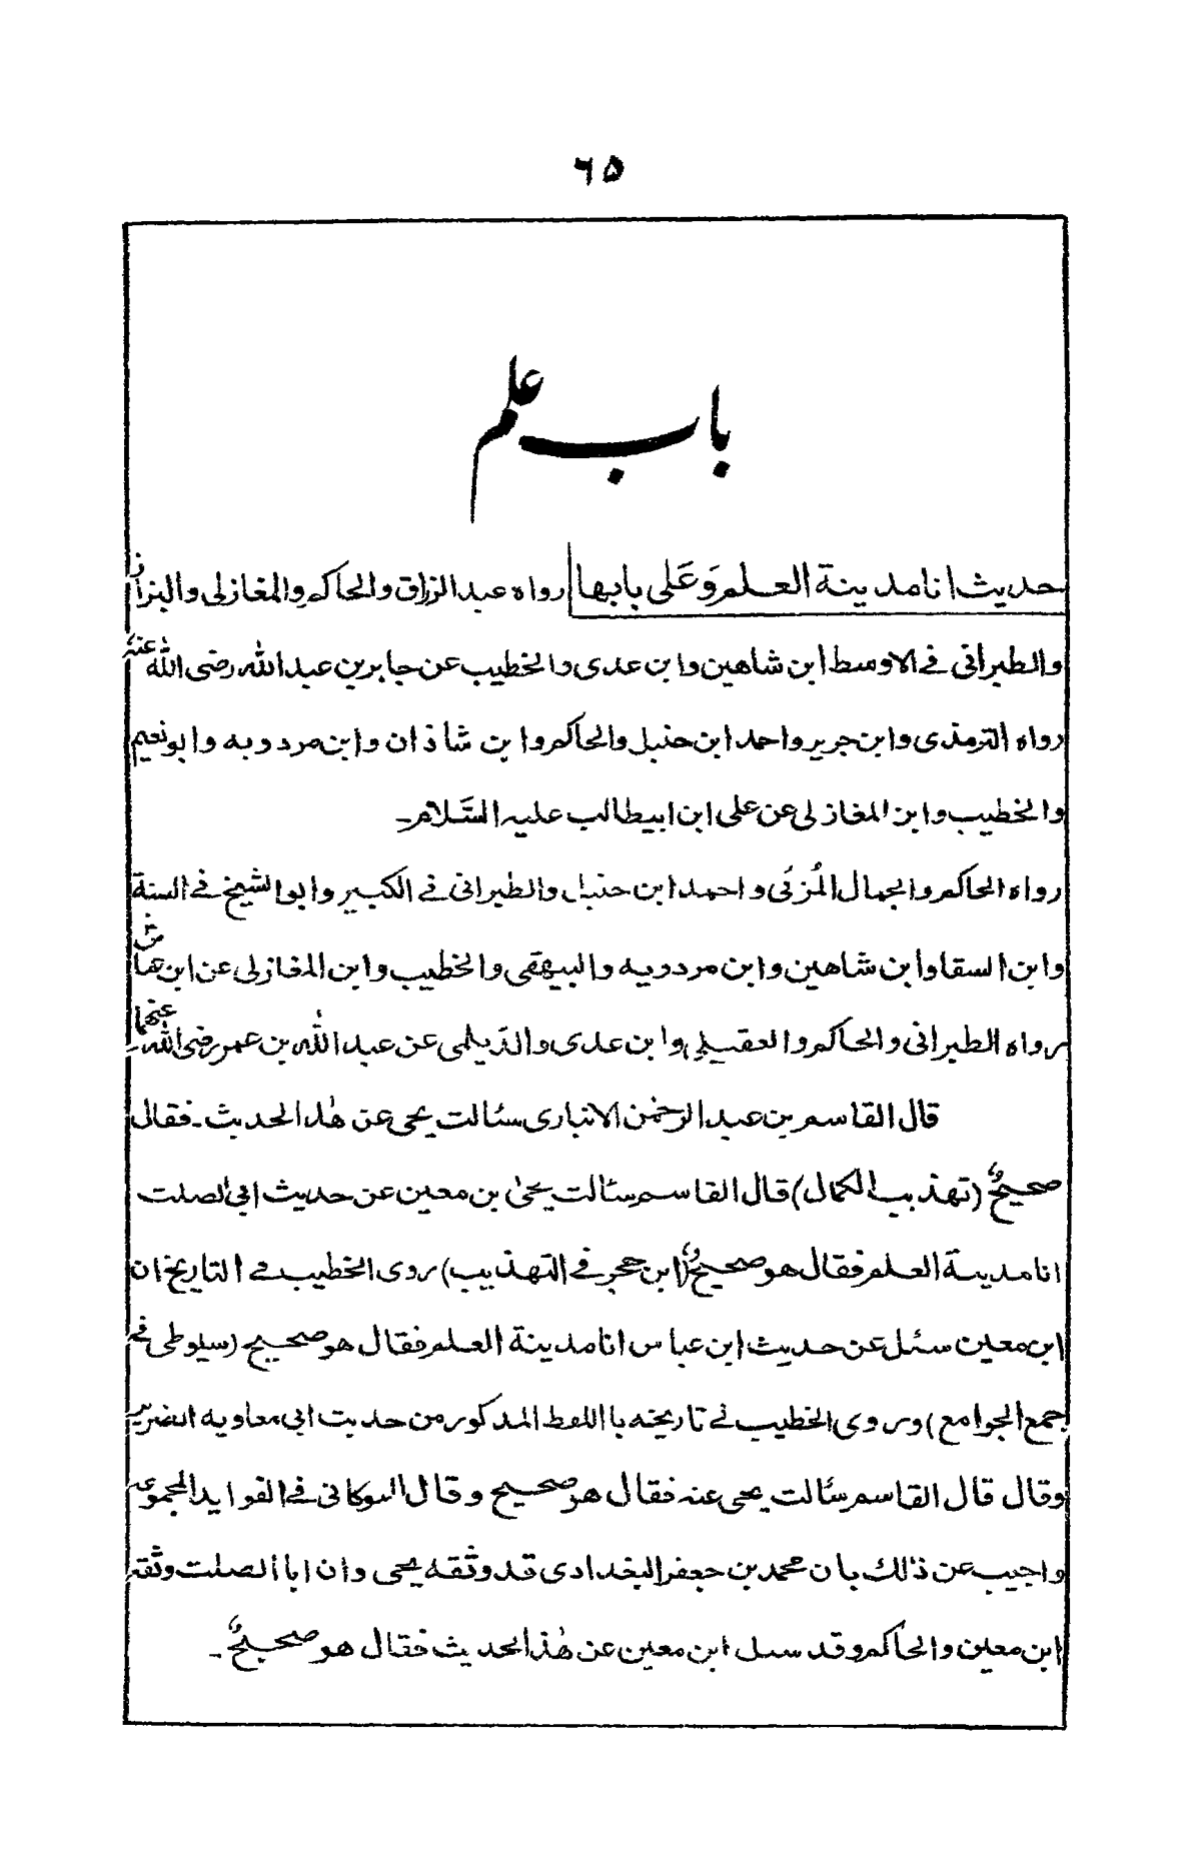 ٦٥
باب علم
حديث انا مدينة العلم وَعَلى بابها رواه عبد الرزاق والحاكم والمغازلى والبزار
والطبرانى فے الاوسط ابن شاهين وابن عدى والخطيب عن جابر بن عبد الله رضى الله عنہ
رواه الترمذى وابن جرير واحمد ابن حنبل والحاكم وابن شاذان وابن مردويه وابو نعيم
والخطيب وابن المغازلى عن على ابن ابيطالب عليہ السَّلام۔
رواه الحاكم والجمال المُزنَى واحمد ابن حنبل والطبرانى فے الكبير وابو الشيخ فے السنة
وابن السقا وابن شاهين وابن مردويه والبيهقى والخطيب وابن المغازلى عن ابن عباس رض
رواه الطبرانى والحاكم والعقيلى وابن عدى والدَيلمى عن عبد الله بن عمر رضى الله عنهما
قال القاسم بن عبد الرحمٰن الانبارى سئالت يحى عن هٰذا الحديث۔ فقال
صحيحٌ (تهذيب الكمال) قال القاسم سئالت يحىٰ بن معين عن حديث ابى الصلت
انا مدينة العلم فقال هو صحيحٌ (ابن حجر فے التهذيب) روى الخطيب فے التاريخ ان
ابن معين سئل عن حديث ابن عباس انا مدينة العلم فقال هو صحيح (سيوطى فے
جمع الجوامع) وروى الخطيب فے تاريخه با اللفظ المذكور من حديث ابى معاويه الضرير
وقال قال القاسم سئالت يحى عنہ فقال هو صحيح وقال الشوكانى فے الفوايد المجموعہ
واجيب عن ذالك بان محمد بن جعفر البغدادى قد وثقه يحى وان ابا الصلت وثقہ
ابن معين والحاكم وقد سئل ابن معين عن هٰذا الحديث فقال هو صحيحٌ ۔